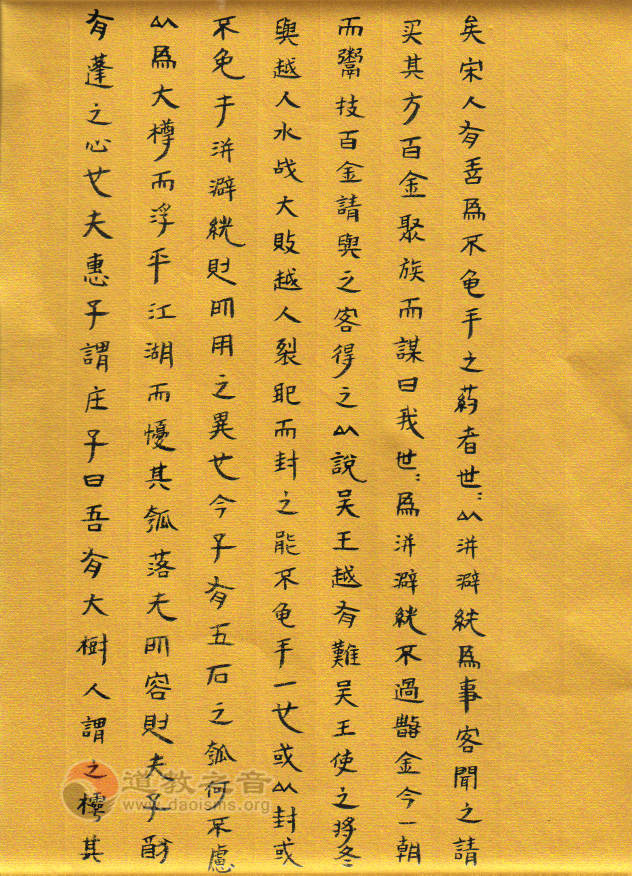 矣宋人有善爲不龟手之药者世〻以洴澼絖爲事客聞之請
买其方百金聚族而謀曰我世〻爲洴澼絖不過數金今一朝
而鬻技百金請與之客得之以說吴王越有難吴王使之将冬
與越人水战大敗越人裂地而封之能不龟手一也或以封或
不免于洴澼絖則所用之異也今子有五石之瓠何不慮
以爲大樽而浮乎江湖而憂其瓠落无所容則夫子猶
有蓬之心也夫惠子謂庄子曰吾有大樹人謂之樗其
道教之音
www.daoisms.org